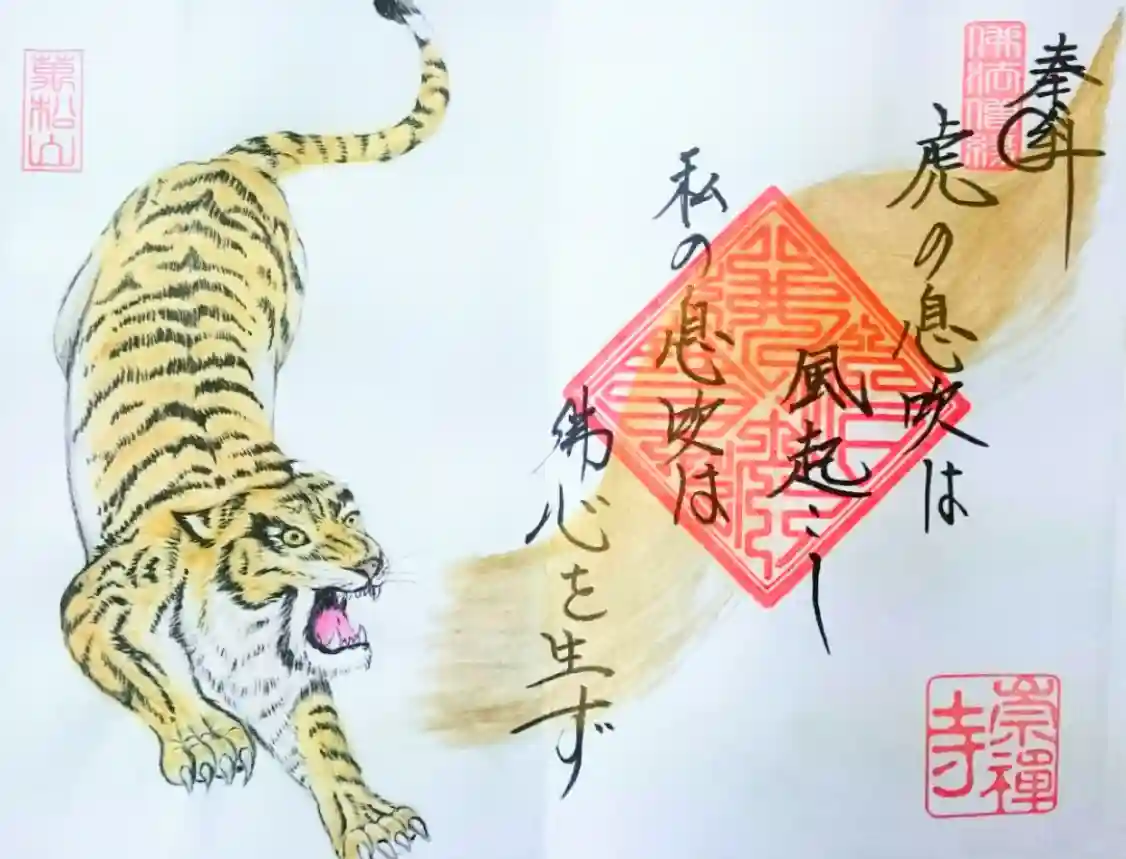 奉拝
虎の息吹は
風起こし
私の息吹は
佛心を生ず
萬松山
崇禅寺